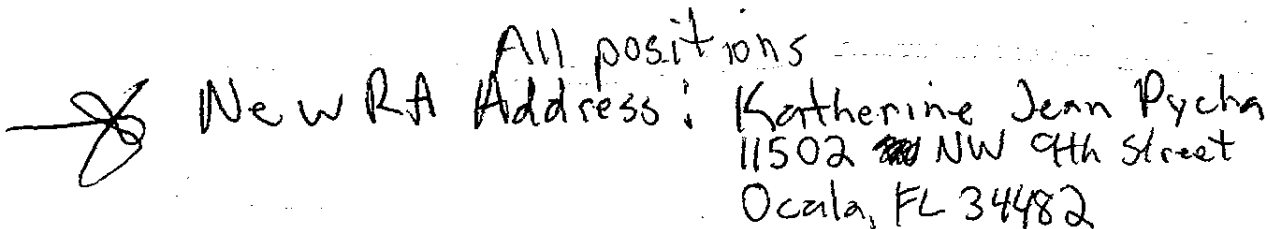 All positions
New RA Address: Katherine Jean Pycha
11502 NW 9th Street
Ocala, FL 34482